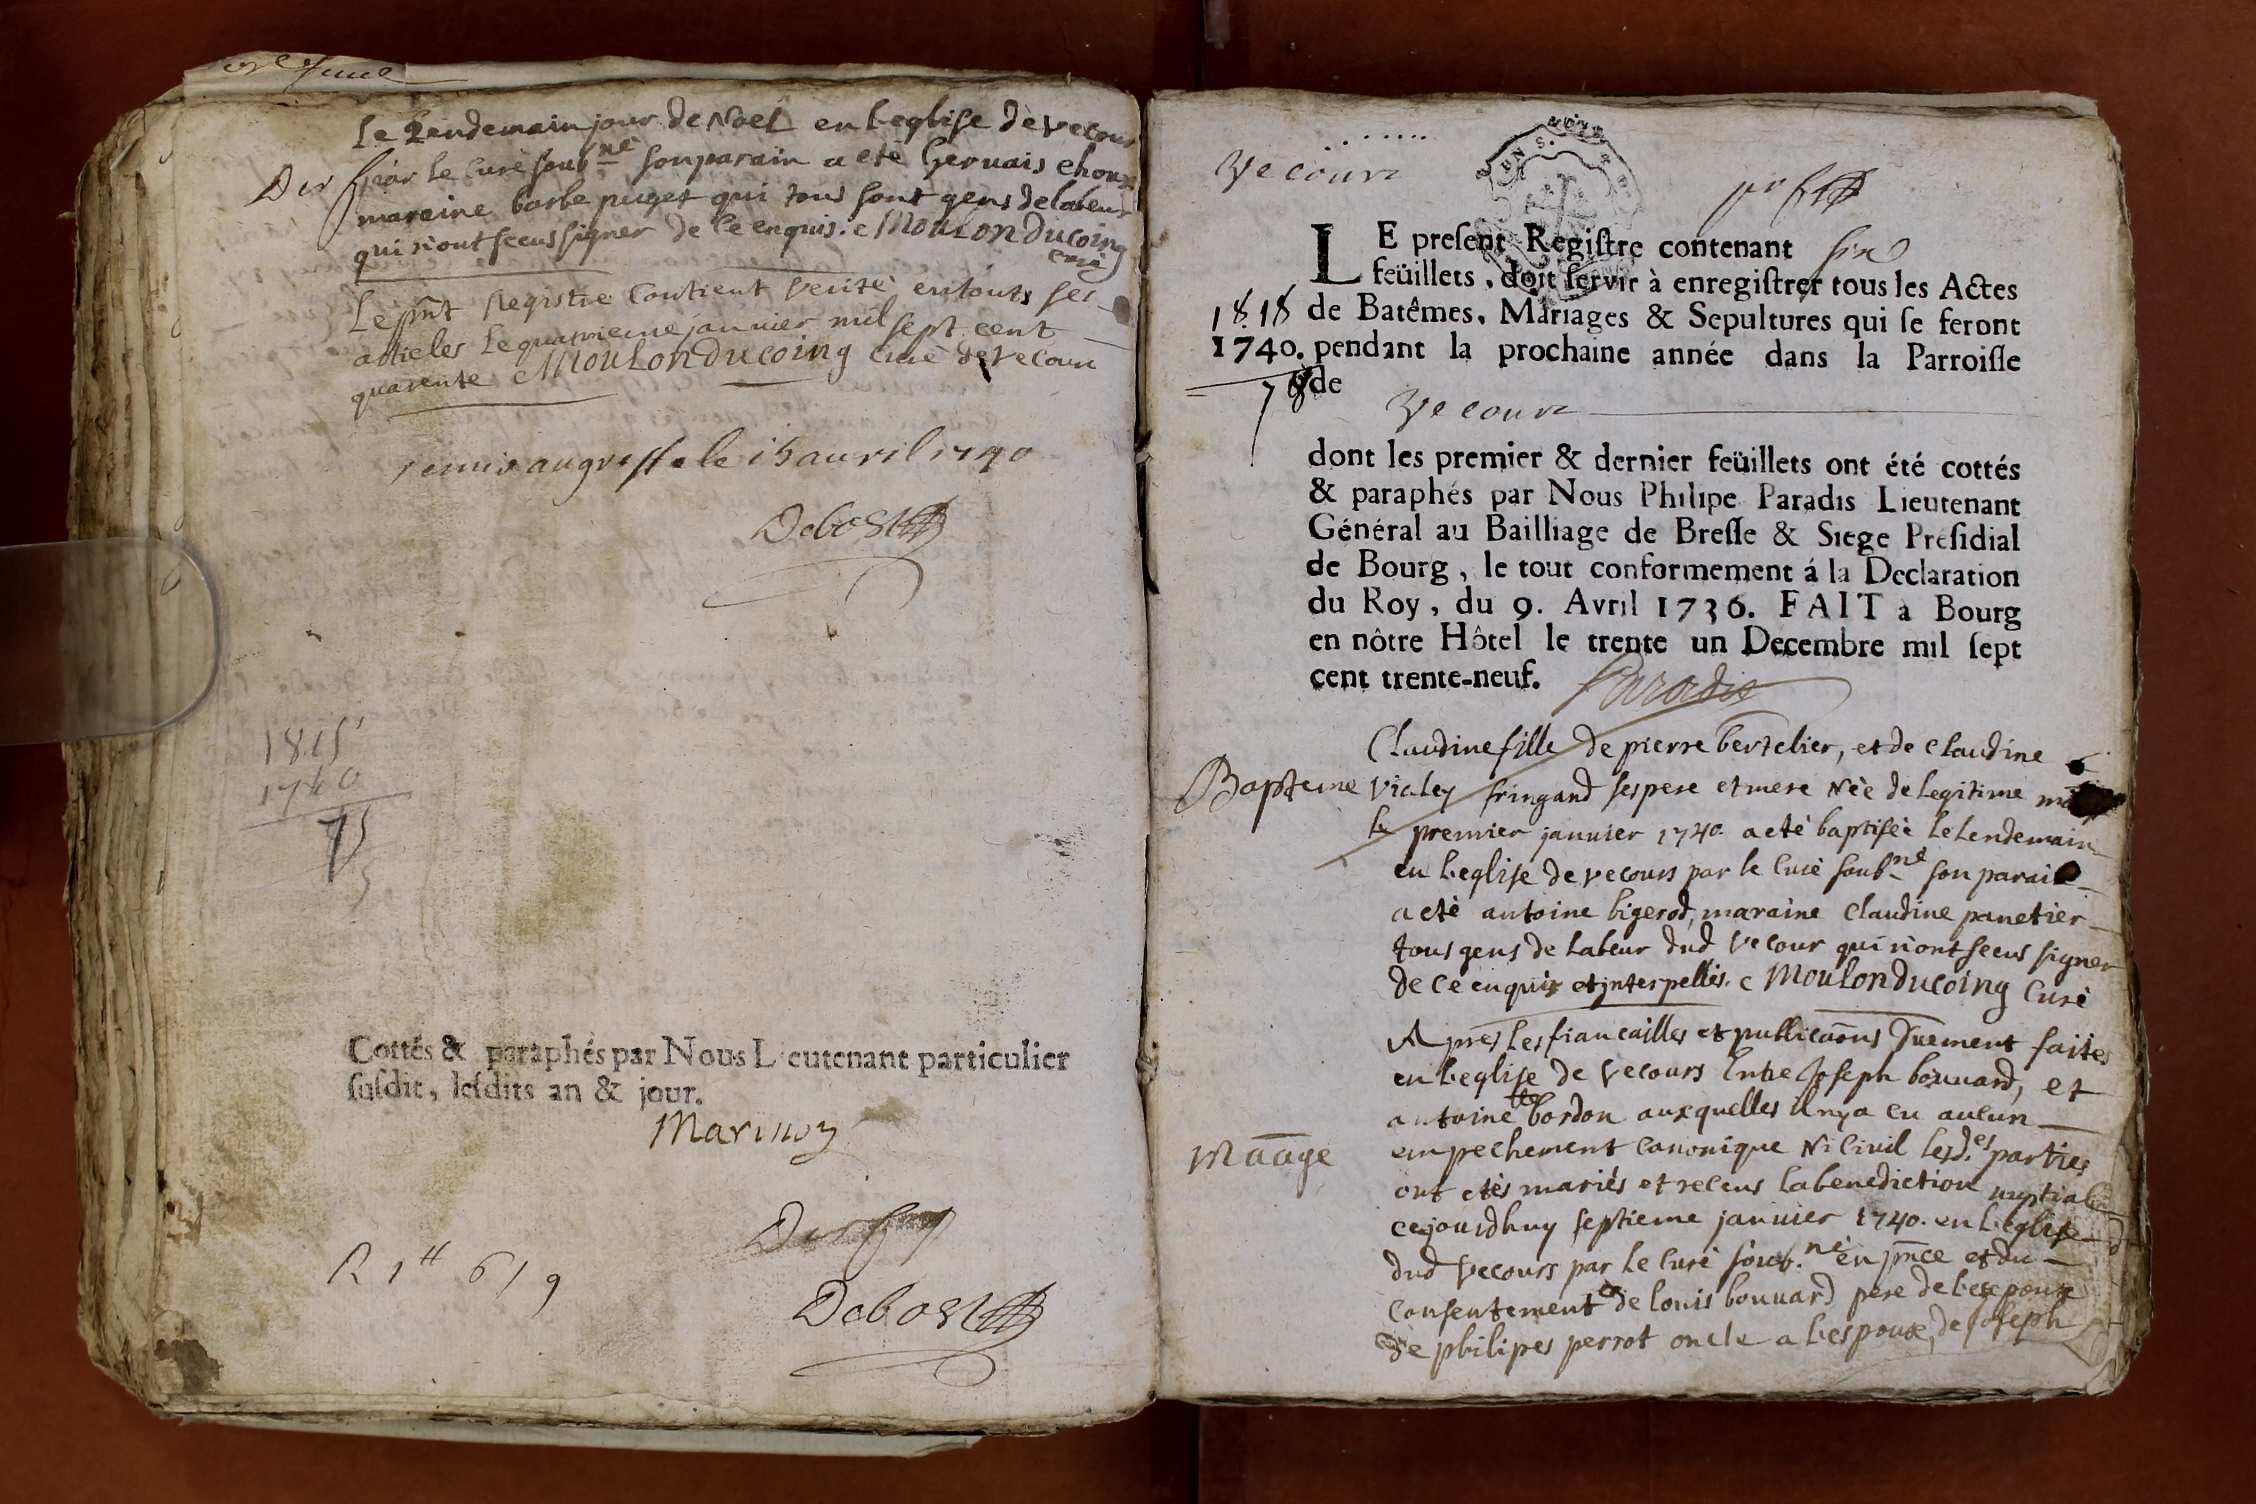 le Lendemain jour de Noel en l'eglise de vecour
Der par le Curé sousné son parain a eté Gervais choux
maraine barbe puget qui tous sont gens de labeur
qui n'ont sceus signer de ce enquis. c Moulonducoing
curé
Le pnt Registre Contient verité en touts ses
articles Le quatrieme janvier mil sept cent
quarente c Moulonducoing curé de vecour
remis au greffe le 15 avril 1740
Debost
1815
1740
75
Cottés & paraphés par Nous Lieutenant particulier
susdit, lesdits an & jour.
Marinon
Der
R 1tt 6 / 9
Debost
Vecour
LE present Registre contenant six
feüillets, doit servir à enregistrer tous les Actes
1818 de Batêmes, Mariages & Sepultures qui se feront
1740. pendant la prochaine année dans la Parroisse
78 de
Vecour
dont les premier & dernier feüillets ont été cottés
& paraphés par Nous Philipe Paradis Lieutenant
Général au Bailliage de Bresse & Siege Présidial
de Bourg, le tout conformement á la Declaration
du Roy, du 9. Avril 1736. FAIT à Bourg
en nôtre Hôtel le trente un Decembre mil sept
cent trente-neuf. Paradis
Claudine fille de pierre bertelier, et de claudine
Bapteme vialey fringand ses pere et mere Née de legitime
le premier janvier 1740. a eté baptisée le lendemain
en l'eglise de vecours par le Curé soubné son parain
a eté antoine bigerod, maraine Claudine panetier
tous gens de labeur dud vecour qui n'ont sceus signer
de ce enquis et jnterpellés. c Moulonducoing Curé
Apres les fiancailles et publicaons duement faites
en l'eglise de vecours Entre Joseph bouvard, et
antoinette bordon auxquelles il ny a eu aucun
Maāge empechement canonique Ni Civil lesd.es parties
ont etés mariés et receus la benediction nuptiale
cejourdhuy septieme janvier 1740. en l'eglise
dud vecours par le Curé soub.né en pnce et du
consentement de louis bouvard pere de l'espoux
de philipes perrot oncle a l'espouse, de Joseph